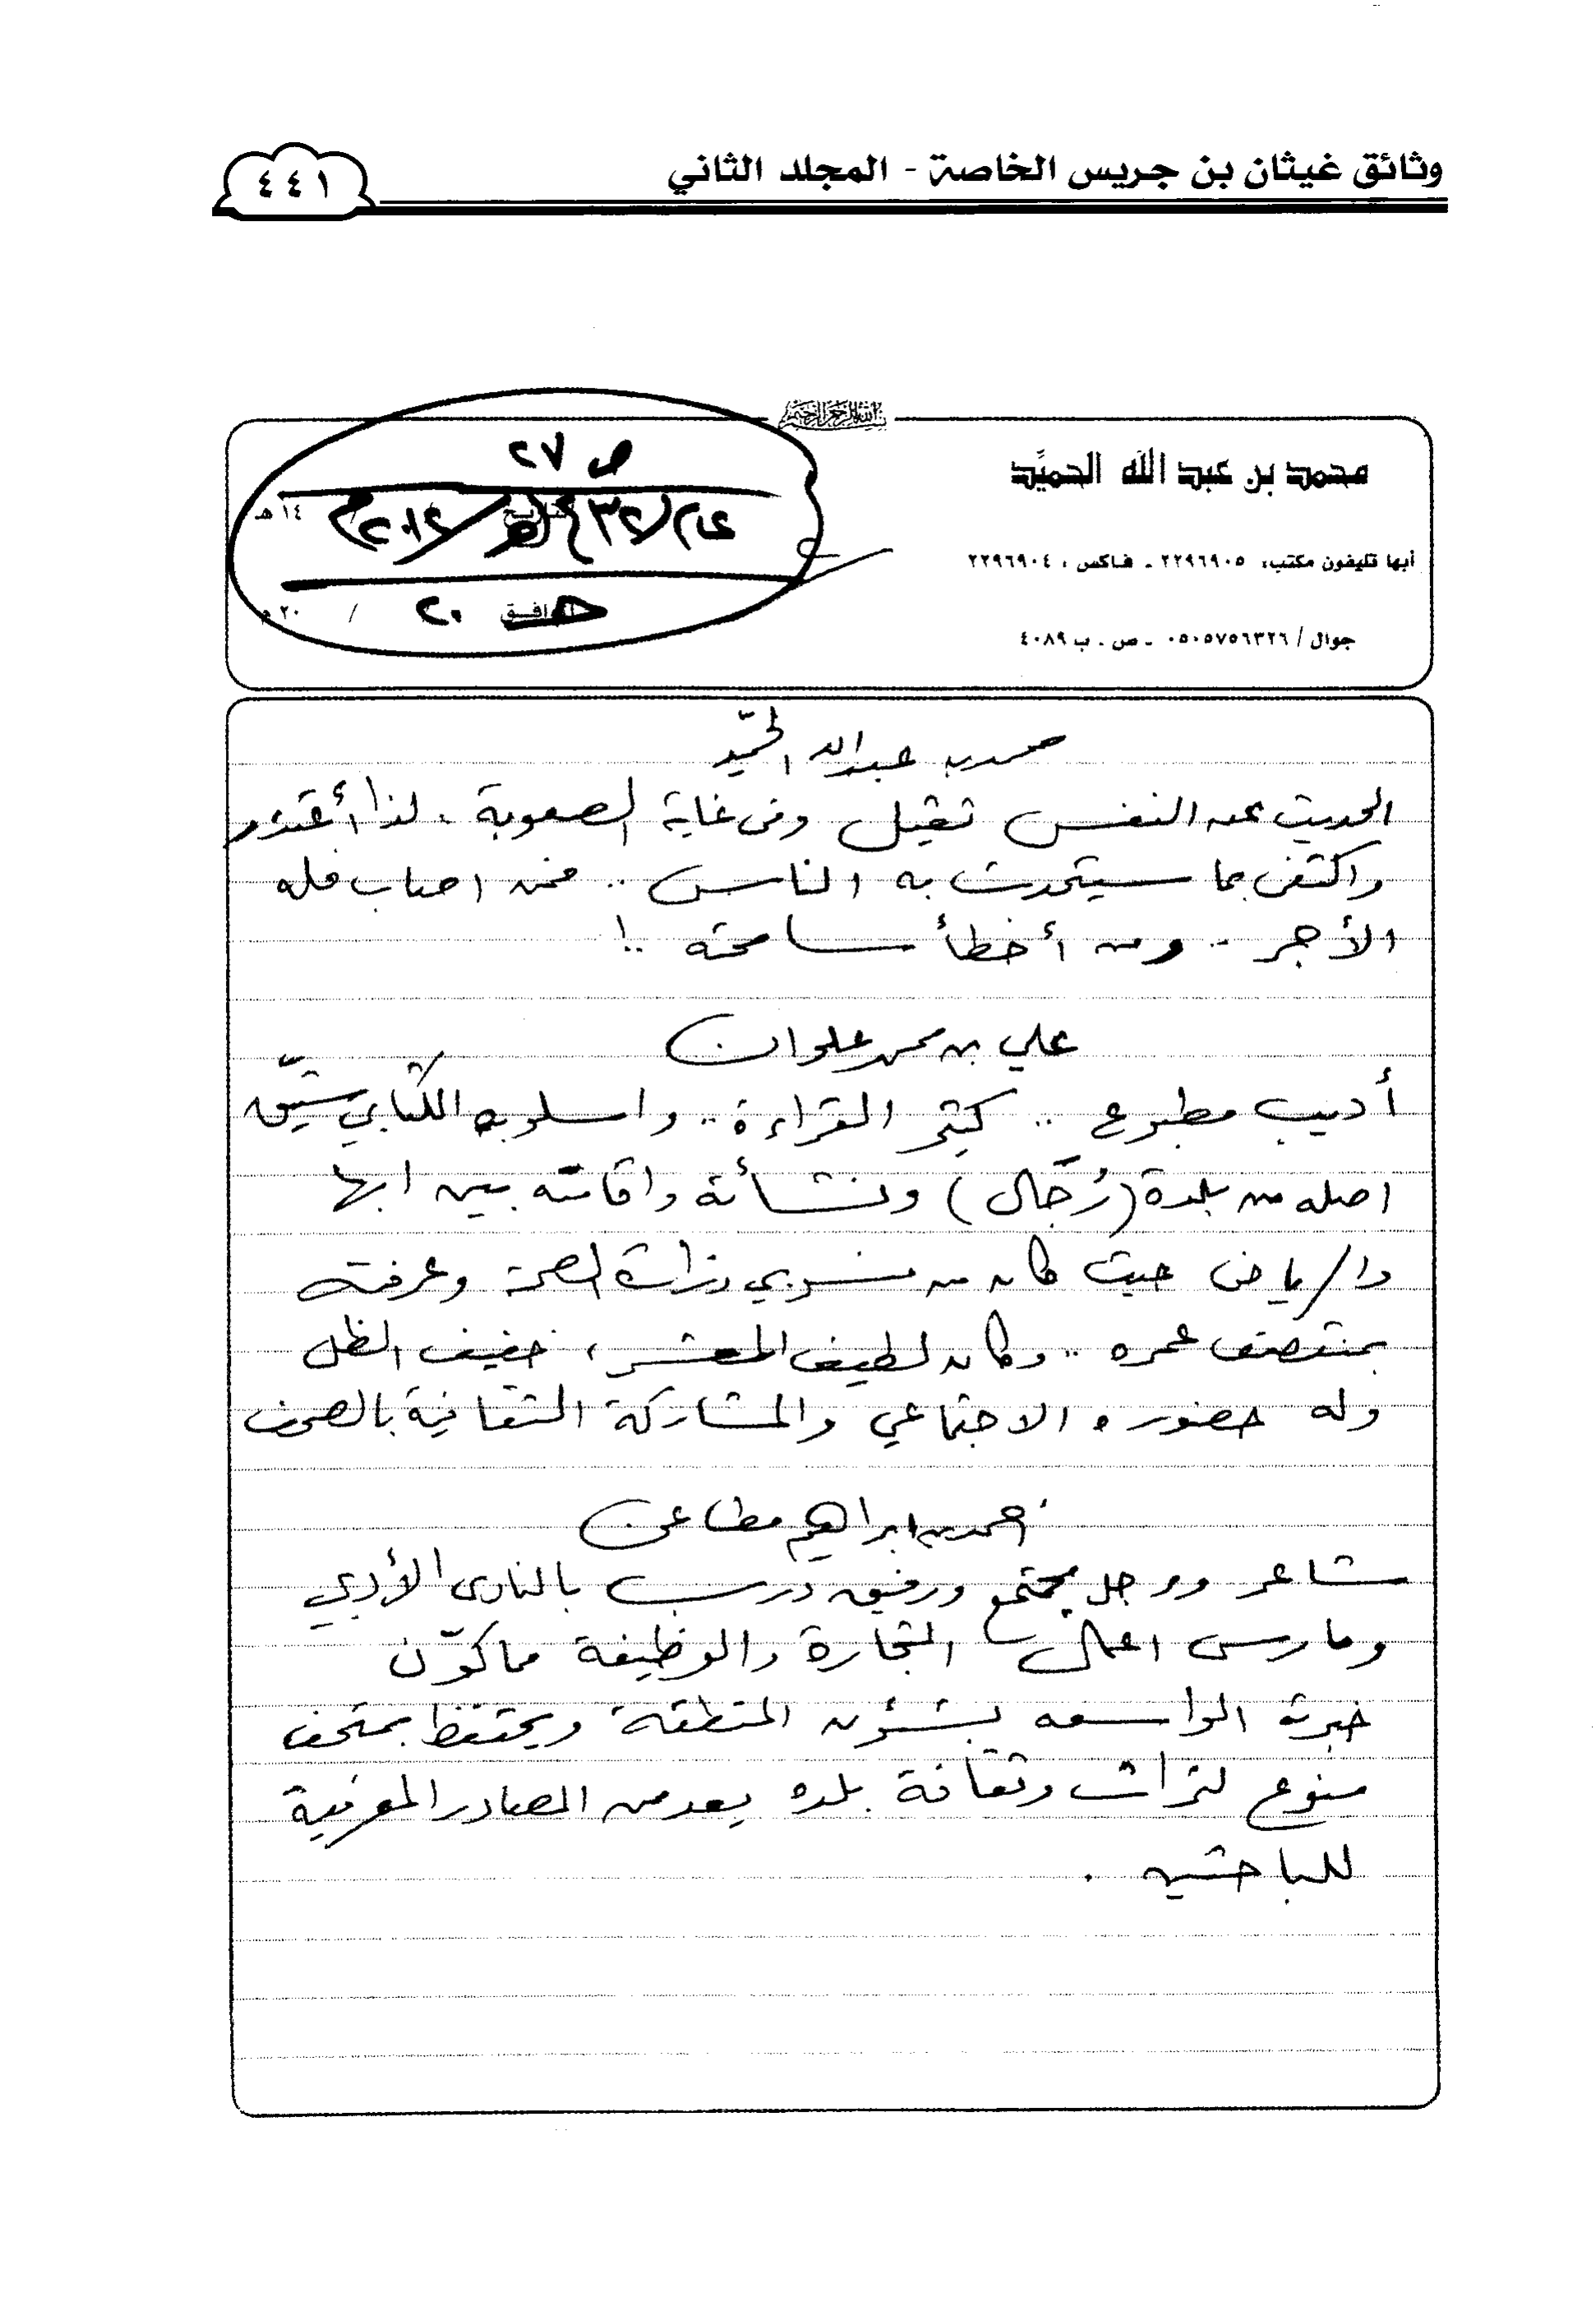 وثائق غيثان بن جريس الخاصة - المجلد الثاني
٤٤١
بسم الله الرحمن الرحيم
محمد بن عبد الله الحميّد
أبها تليفون مكتب: ٢٢٩٦٩٠٥ - فاكس: ٢٢٩٦٩٠٤
جوال / ٠٥٠٥٧٥٦٣٢٦ - ص . ب ٤٠٨٩
ص ٢٧
١٤هـ
الموافق / ٢٠م
محمد بن عبدالله الحميّد
الحديث عن النفس ثقيل وفي غاية الصعوبة . لذا أعتذر
واكتفي بما سيتحدث به الناس .. فمن اصاب فله
الأجر .. ومن أخطأ سامحته ..!
علي بن محمد علوان
أديب مطبوع .. كثير القراءة .. واسلوبه الكتابي شيّق
اصله من بلدة (رُجَال) ونشأته واقامته بين ابها
والرياض حيث كان من منسوبي وزارة الصحة وعرفته
بمنتصف عمره .. وكان لطيف المعشر ، خفيف الظل
وله حضوره الاجتماعي والمشاركة الثقافية بالصحف
احمد بن ابراهيم مطاعن
شاعر ورجل مجتمع ورفيق درب بالنادي الأدبي
ومارس اعمال التجارة والوظيفة مما كوّن
خبرته الواسعه بشئون المنطقة ويحتفظ بمتحف
منوع لتراث وثقافة بلده يعد من المصادر المعرفية
للباحثين .